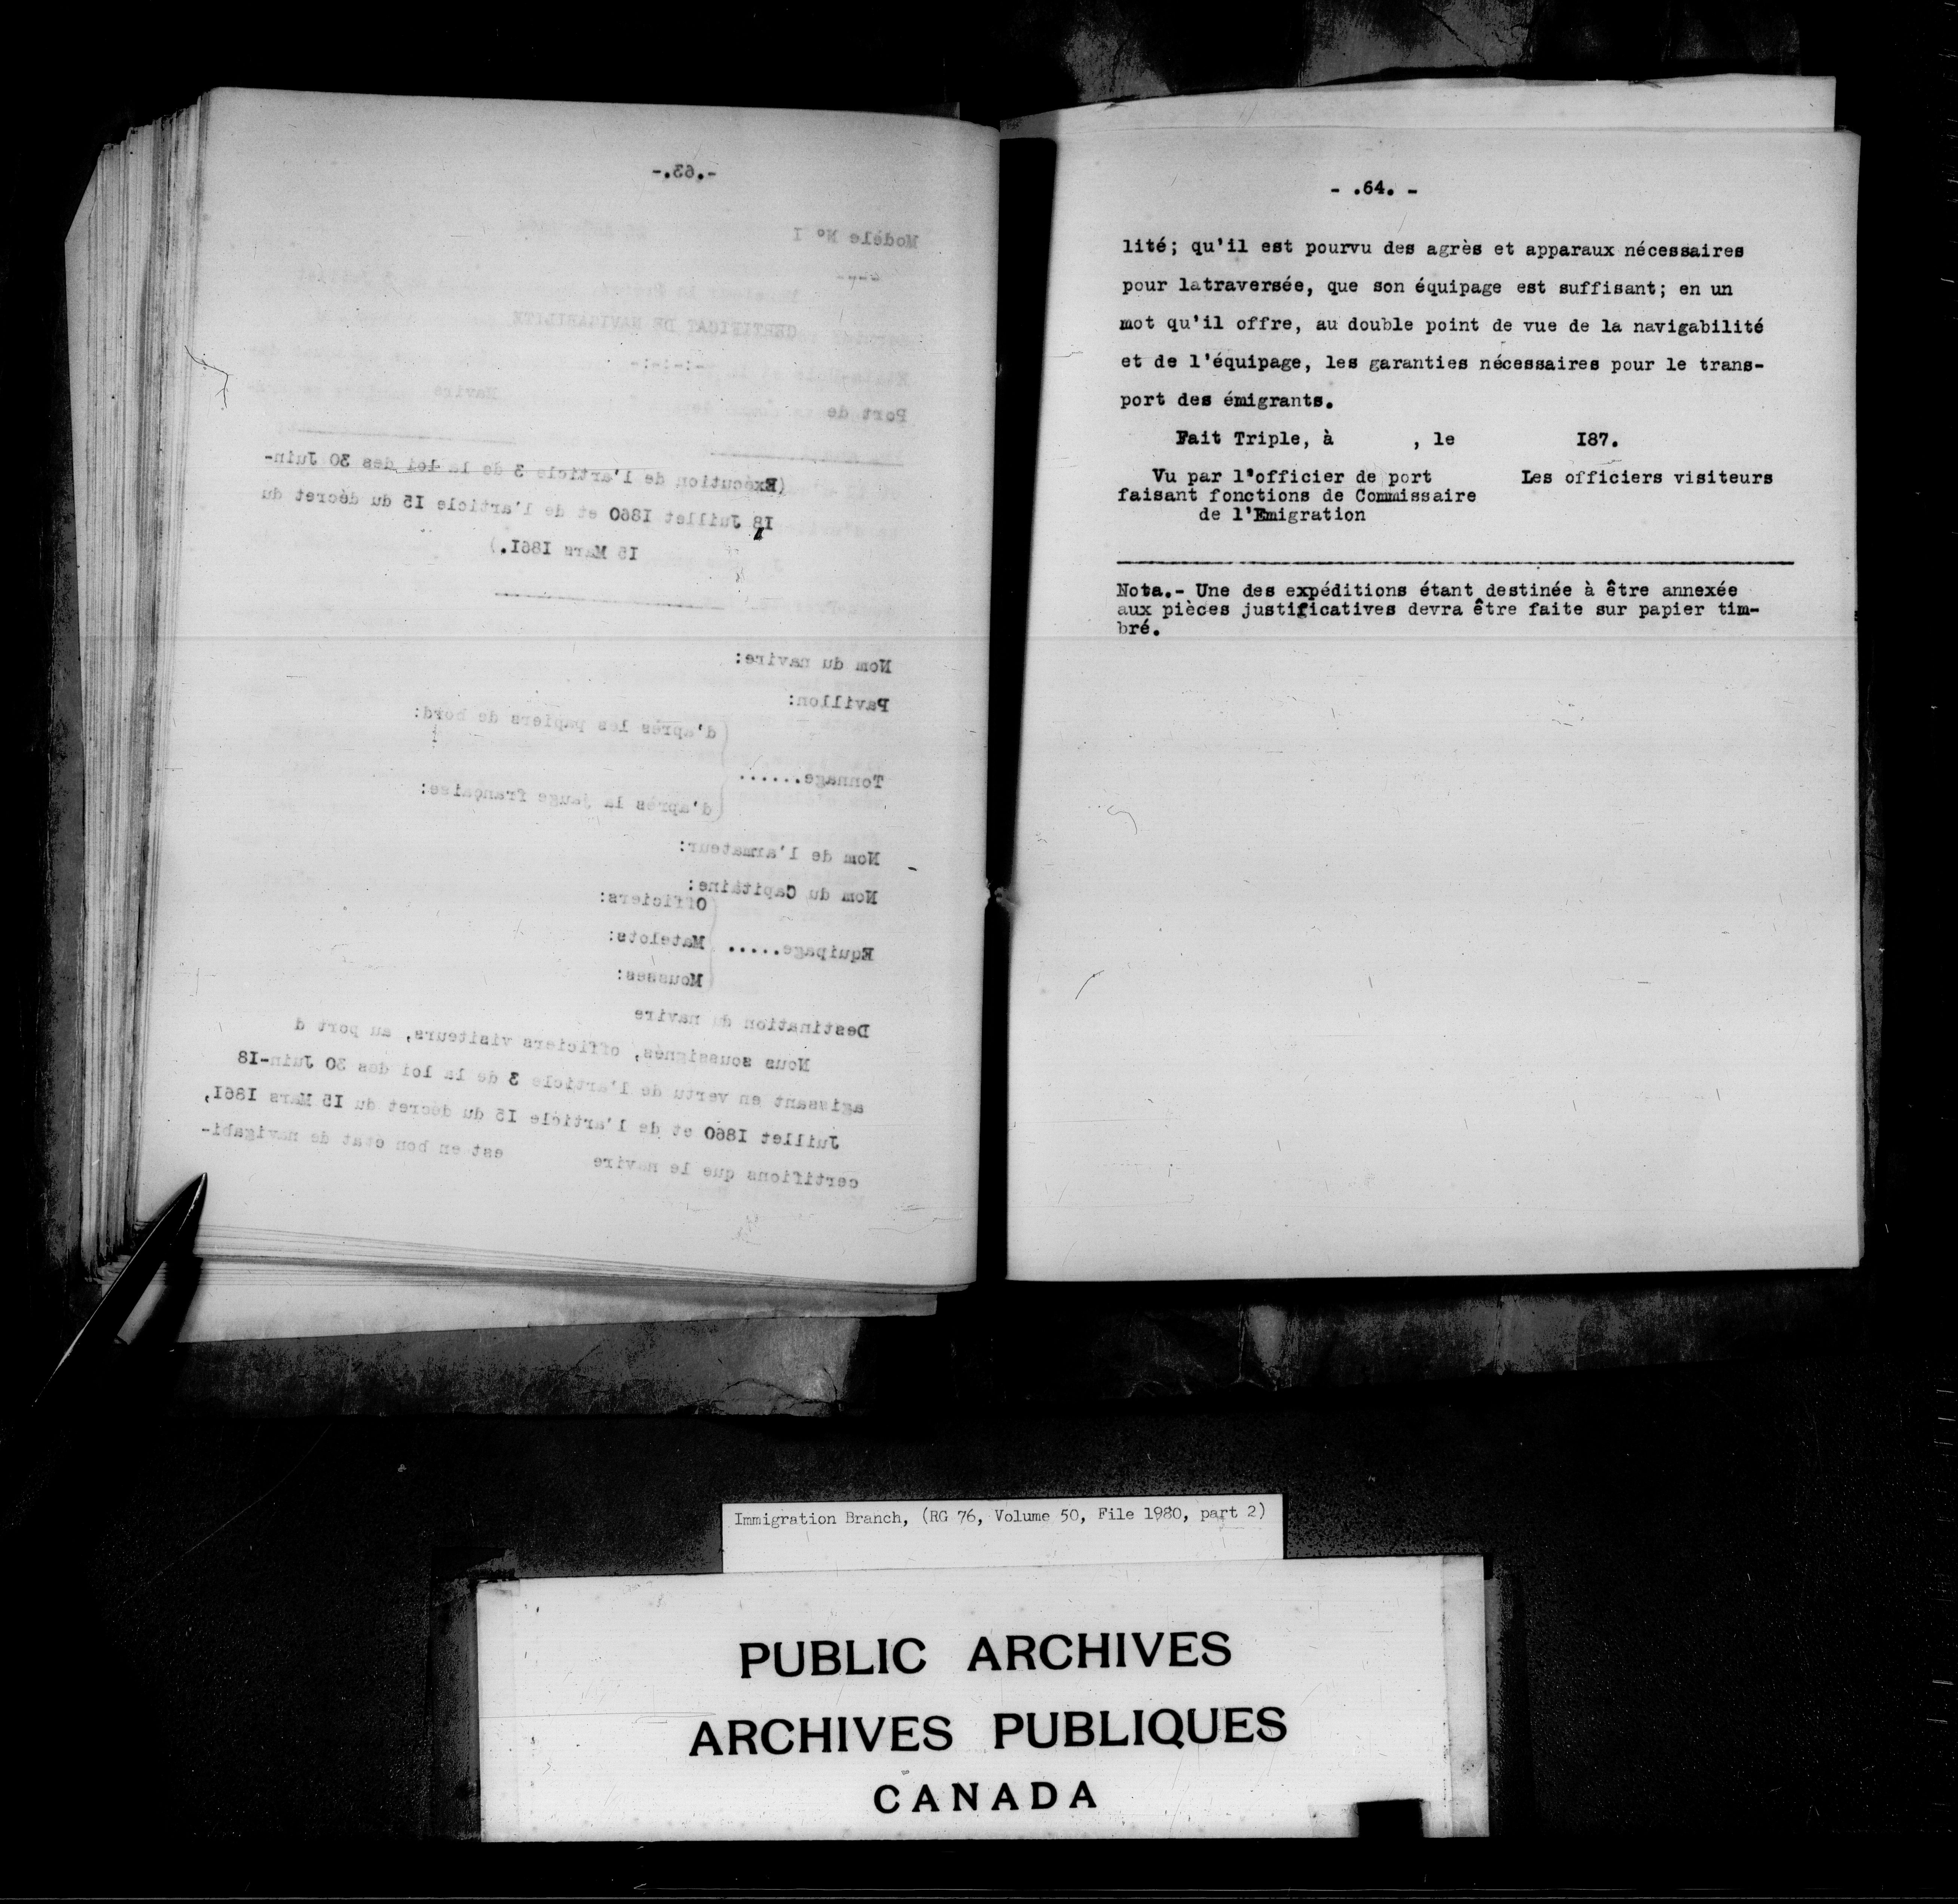 -.63.-
Modèle Nº I
CERTIFICAT DE NAVIGABILITE
-:-:-:-
Port de
Navire
(Exécution de l'article 3 de la loi des 30 Juin-
18 Juillet I860 et de l'article I5 du décret du
I5 Mars I86I.)
Nom du navire:
Pavillon:
d'après les papiers de bord:
Tonnage......
d'après la jauge française:
Nom de l'armateur:
Nom du Capitaine:
Officiers:
Equipage..... Matelots:
Mousses:
Destination du navire
Nous soussignés, officiers visiteurs, au port d
agissant en vertu de l'article 3 de la loi des 30 Juin-I8
Juillet I860 et de l'article I5 du décret du I5 Mars I86I,
certifions que le navire est en bon état de navigabi-
- .64. -
lité; qu'il est pourvu des agrès et apparaux nécessaires
pour latraversée, que son équipage est suffisant; en un
mot qu'il offre, au double point de vue de la navigabilité
et de l'équipage, les garanties nécessaires pour le trans-
port des émigrants.
Fait Triple, à , le I87.
Vu par l'officier de port Les officiers visiteurs
faisant fonctions de Commissaire
de l'Emigration
Nota.- Une des expéditions étant destinée à être annexée
aux pièces justificatives devra être faite sur papier tim-
bré.
Immigration Branch, (RG 76, Volume 50, File 1980, part 2)
PUBLIC ARCHIVES
ARCHIVES PUBLIQUES
CANADA